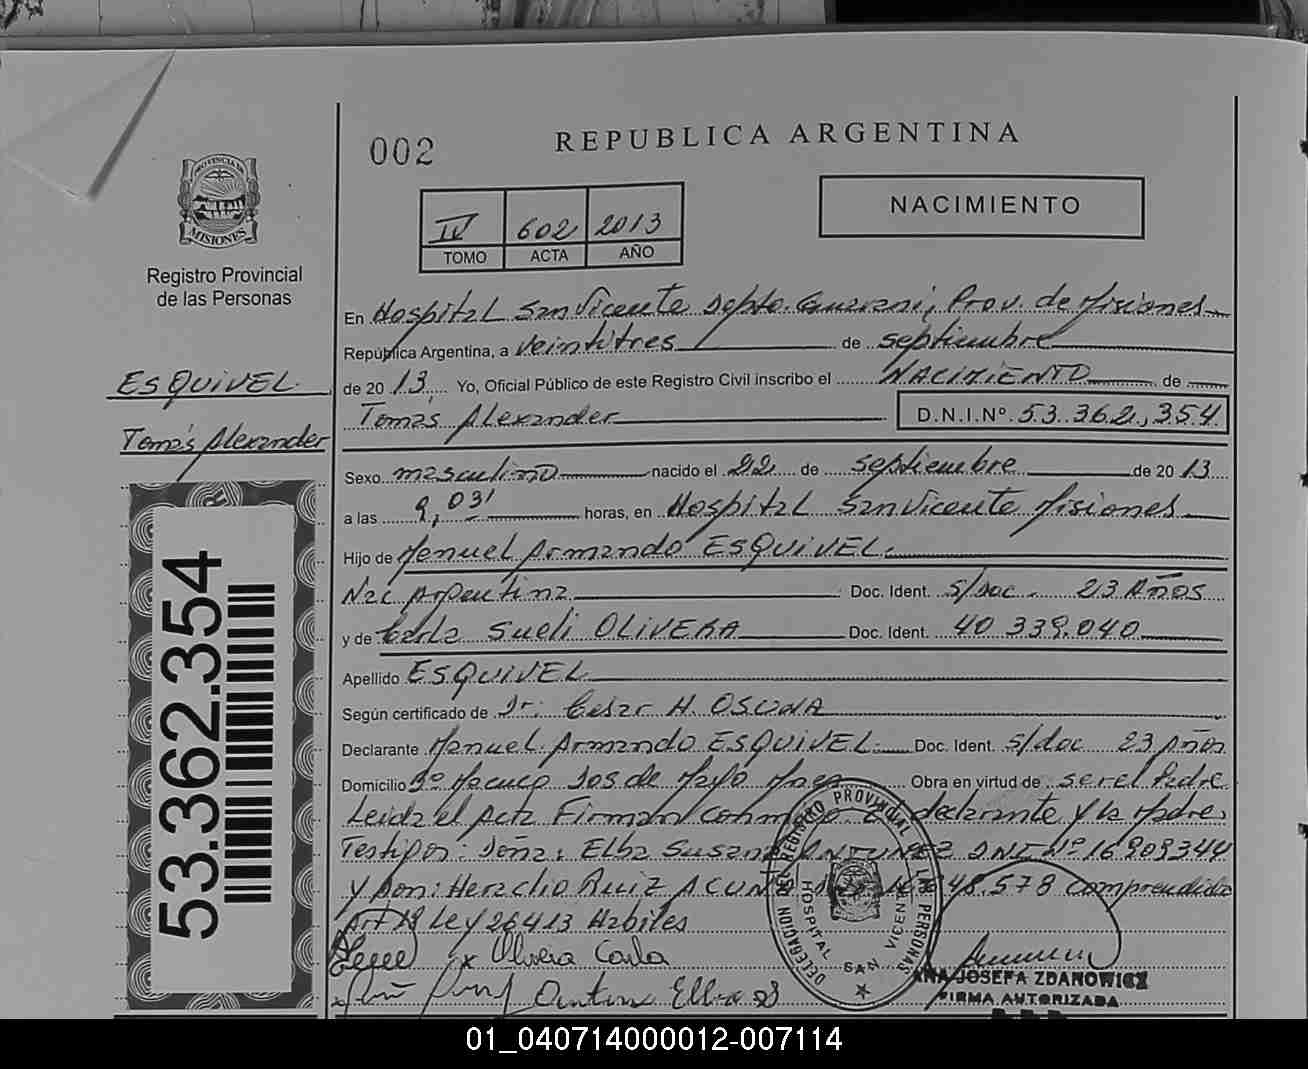 002
REPUBLICA ARGENTINA
NACIMIENTO
IV 602 2013
TOMO ACTA AÑO
PROVINCIA DE
MISIONES
Registro Provincial
de las Personas
En Hospital San Vicente Depto. Guarani, Prov. de Misiones
República Argentina, a veintitres de septiembre
de 2013. Yo, Oficial Público de este Registro Civil inscribo el NACIMIENTO de
Tomás Alexander D.N.I.Nº. 53.362.354
ESQUIVEL
Tomás Alexander
53.362.354
Sexo masculino nacido el 22 de septiembre de 2013
a las 9,03' horas, en Hospital San Vicente Misiones
Hijo de Manuel Armando ESQUIVEL.
Nac Argentina Doc. Ident. S/doc. 23 AÑOS
y de Carla Sueli OLIVERA Doc. Ident. 40 339.040
Apellido ESQUIVEL
Según certificado de Dr. Cesar H. OSUNA
Declarante Manuel Armando ESQUIVEL Doc. Ident. S/doc 23 Años
Domicilio Dos de Mayo Obra en virtud de ser el Padre
Leida el Acta Firman conmigo El declarante y la Madre.
Testigos: Doña: Elba Susana ANTUNEZ DNI Nº 16909344
y Don: Heraclio Ruiz ACUNA 48.578 comprendido
Art 18 Ley 26413 Habiles
x Olivera Carla
Elba
DELEGACION DEL REGISTRO PROVINCIAL DE LAS PERSONAS
HOSPITAL SAN VICENTE
ANA JOSEFA ZDANOWICZ
FIRMA AUTORIZADA
01_040714000012-007114